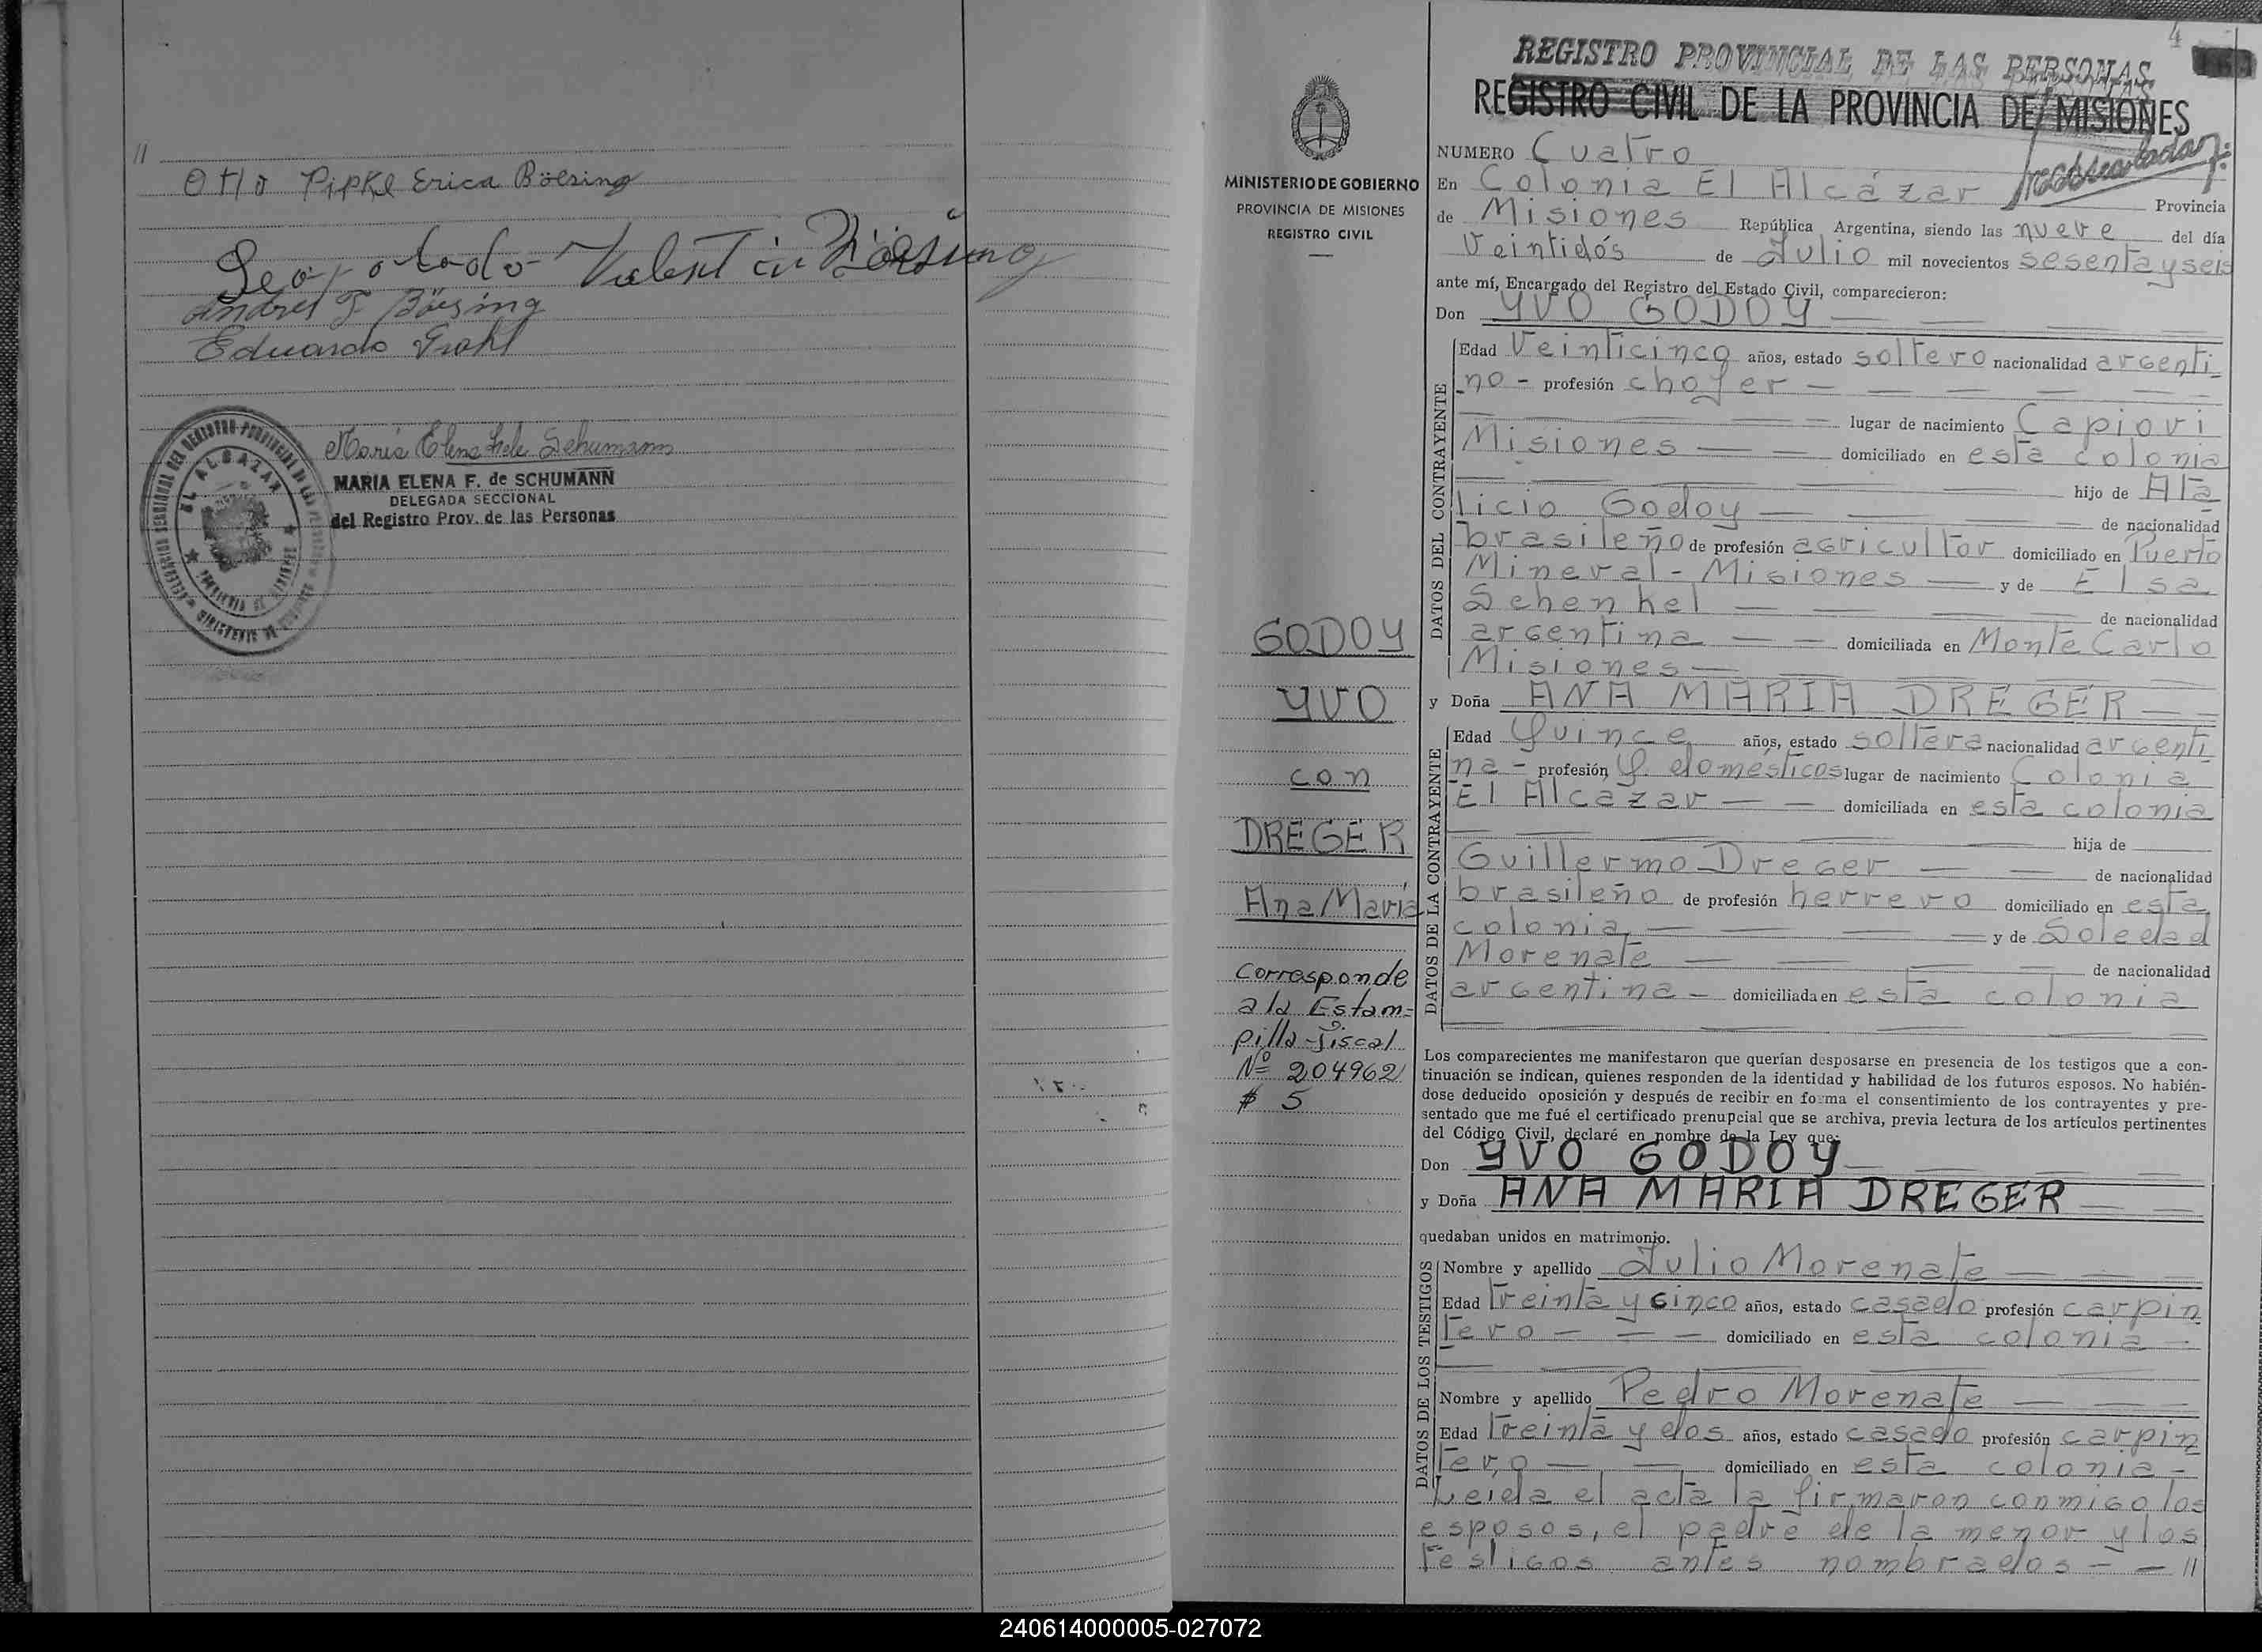 //
Otto Pipke Erica Böesing
Andres F Böesing
Eduardo Prahl
MARIA ELENA F. de SCHUMANN
DELEGADA SECCIONAL
del Registro Prov. de las Personas
EL ALCAZAR
4
REGISTRO PROVINCIAL DE LAS PERSONAS
REGISTRO CIVIL DE LA PROVINCIA DE MISIONES
MINISTERIO DE GOBIERNO
PROVINCIA DE MISIONES
REGISTRO CIVIL
GODOY
YVO
con
DREGER
Ana María
Corresponde
a la Estam-
pilla fiscal
Nº 204962
$ 5
NUMERO Cuatro
En Colonia El Alcázar
Provincia
de Misiones República Argentina, siendo las nueve del día
Veintidós de Julio mil novecientos sesenta y seis
ante mí, Encargado del Registro del Estado Civil, comparecieron:
Don YVO GODOY
DATOS DEL CONTRAYENTE
Edad Veinticinco años, estado soltero nacionalidad argenti
no - profesión chofer
lugar de nacimiento Capiovi
Misiones domiciliado en esta colonia
hijo de Ata
licio Godoy de nacionalidad
brasileño de profesión agricultor domiciliado en Puerto
Mineral - Misiones y de Elsa
Schenkel de nacionalidad
argentina domiciliada en Monte Carlo
Misiones
y Doña ANA MARIA DREGER
DATOS DE LA CONTRAYENTE
Edad Quince años, estado soltera nacionalidad argenti
na - profesión Q. domésticos lugar de nacimiento Colonia
El Alcazar domiciliada en esta colonia
hija de
Guillermo Dreger de nacionalidad
brasileño de profesión herrero domiciliado en esta
colonia y de Soledad
Morenate de nacionalidad
argentina - domiciliada en esta colonia
Los comparecientes me manifestaron que querían desposarse en presencia de los testigos que a con-
tinuación se indican, quienes responden de la identidad y habilidad de los futuros esposos. No habién-
dose deducido oposición y después de recibir en forma el consentimiento de los contrayentes y pre-
sentado que me fué el certificado prenupcial que se archiva, previa lectura de los artículos pertinentes
del Código Civil, declaré en nombre de la Ley que:
Don YVO GODOY
y Doña ANA MARIA DREGER
quedaban unidos en matrimonio.
DATOS DE LOS TESTIGOS
Nombre y apellido Julio Morenate
Edad treinta y cinco años, estado casado profesión carpin
tero domiciliado en esta colonia
Nombre y apellido Pedro Morenate
Edad treinta y dos años, estado casado profesión carpin
tero domiciliado en esta colonia
Leída el acta la firmaron conmigo los
esposos, el padre de la menor y los
testigos antes nombrados //
240614000005-027072